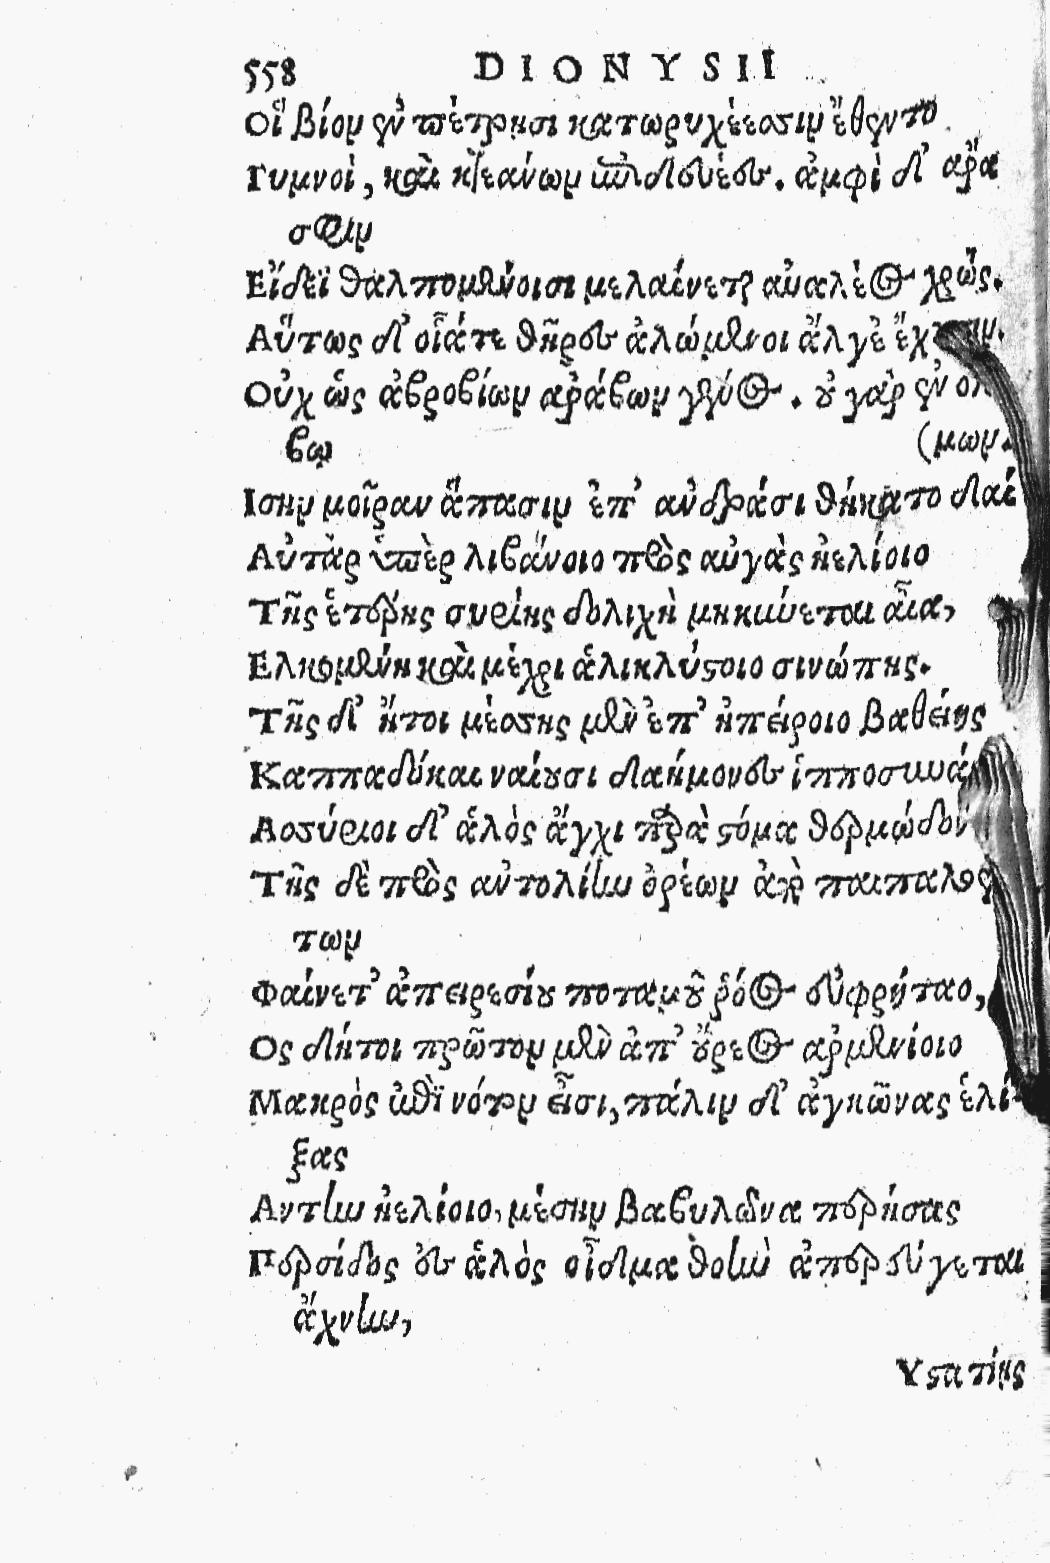 558 DIONYSII
Οἳ βίον ἐν πέτρῃσι κατωρυχέεσσιν ἔθεντο
Γυμνοὶ, καὶ κτεάνων ἐπιδευέες. ἀμφὶ δ' ἄρα
σφιν
Εἴδεϊ θαλπομένοισι μελαίνεται αὐαλέος χρώς.
Αὕτως δ' οἷάτε θῆρες ἀλώμενοι ἄλγε'
Οὐχ ὡς ἁβροβίων ἀράβων γένος. οὐ γὰρ ἐν ὀλ
βῳ
(μων.
Ισην μοῖραν ἅπασιν ἐπ' ἀνδράσι θήκατο δαί
Αὐτὰρ ὑπὲρ λιβάνοιο πρὸς αὐγὰς ἠελίοιο
Τῆς ἑτέρης συρίης δολιχὴ μηκύνεται αἶα,
Ελκομένη καὶ μέχρι ἁλικλύστοιο σινώπης.
Τῆς δ' ἤτοι μέσσης μὲν ἐπ' ἠπείροιο βαθείης
Καππαδόκαι ναίουσι δαήμονες
Ασσύριοι δ' ἁλὸς ἄγχι παρὰ στόμα
Τῆς δὲ πρὸς ἀντολίην ὀρέων ἀπὸ
των
Φαίνετ' ἀπειρεσίου ποταμοῦ ῥόος εὐφρήταο,
Ος δήτοι πρῶτον μὲν ἀπ' οὔρεος ἀρμενίοιο
Μακρὸς ἐπὶ νότον εἶσι, πάλιν δ' ἀγκῶνας ἑλί
ξας
Αντην ἠελίοιο, μέσην βαβυλῶνα περήσας
Περσίδος εἰς ἁλὸς οἶδμα θοὴν ἀπερεύγεται
ἄχνην,
Υστατίης